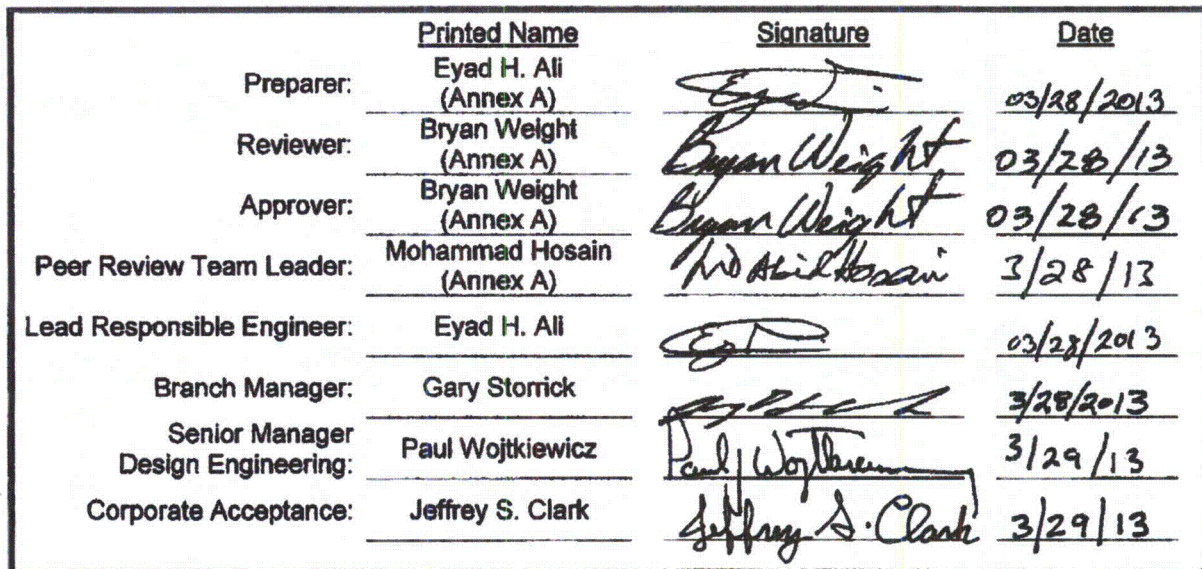 Printed Name Signature Date
Preparer: Eyad H. Ali (Annex A) 03/28/2013
Reviewer: Bryan Weight (Annex A) Bryan Weight 03/28/13
Approver: Bryan Weight (Annex A) Bryan Weight 03/28/13
Peer Review Team Leader: Mohammad Hosain (Annex A) Md Abid Hosain 3/28/13
Lead Responsible Engineer: Eyad H. Ali 03/28/2013
Branch Manager: Gary Storrick 3/28/2013
Senior Manager
Design Engineering: Paul Wojtkiewicz 3/29/13
Corporate Acceptance: Jeffrey S. Clark Jeffrey S. Clark 3/29/13